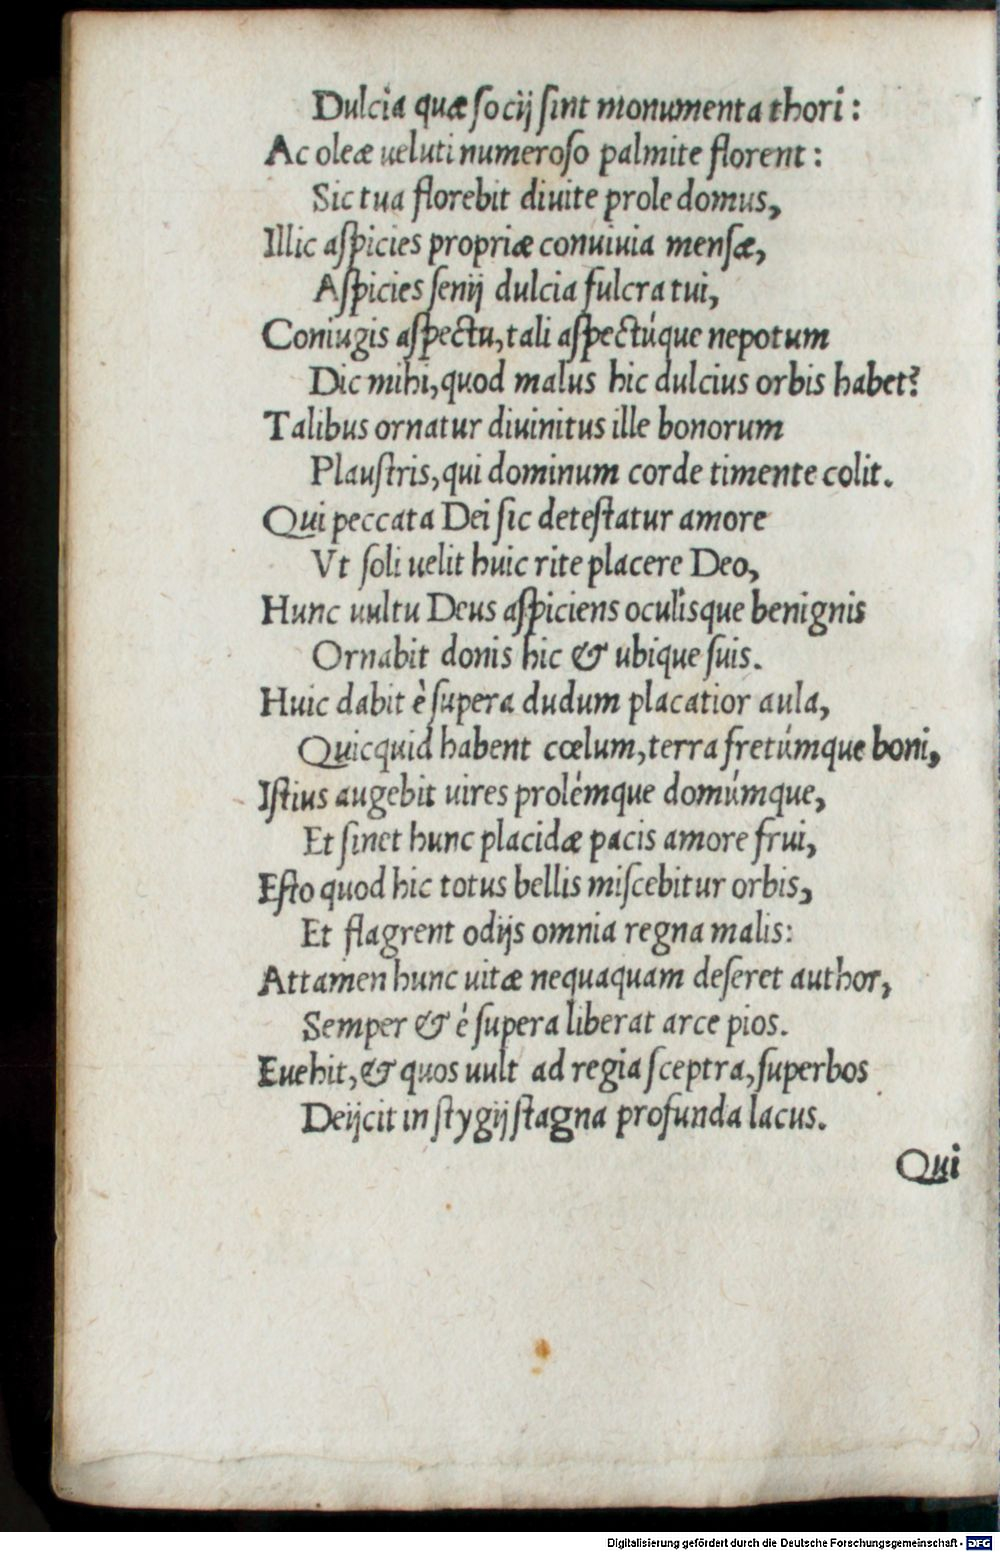 Dulcia quæ socij sint monumenta thori:
Ac oleæ ueluti numeroso palmite florent:
Sic tua florebit diuite prole domus,
Illic aspicies propriæ conuiuia mensæ,
Aspicies senij dulcia fulcra tui,
Coniugis aspectu, tali aspectúque nepotum
Dic mihi, quod malus hic dulcius orbis habet?
Talibus ornatur diuinitus ille bonorum
Plaustris, qui dominum corde timente colit.
Qui peccata Dei sic detestatur amore
Vt soli uelit huic rite placere Deo,
Hunc uultu Deus aspiciens oculisque benignis
Ornabit donis hic & ubique suis.
Huic dabit è supera dudum placatior aula,
Quicquid habent cœlum, terra fretúmque boni,
Istius augebit uires prolémque domúmque,
Et sinet hunc placidæ pacis amore frui,
Esto quod hic totus bellis miscebitur orbis,
Et flagrent odijs omnia regna malis:
Attamen hunc uitæ nequaquam deseret author,
Semper & è supera liberat arce pios.
Euehit, & quos uult ad regia sceptra, superbos
Deijcit in stygij stagna profunda lacus.
Qui
Digitalisierung gefördert durch die Deutsche Forschungsgemeinschaft - DFG